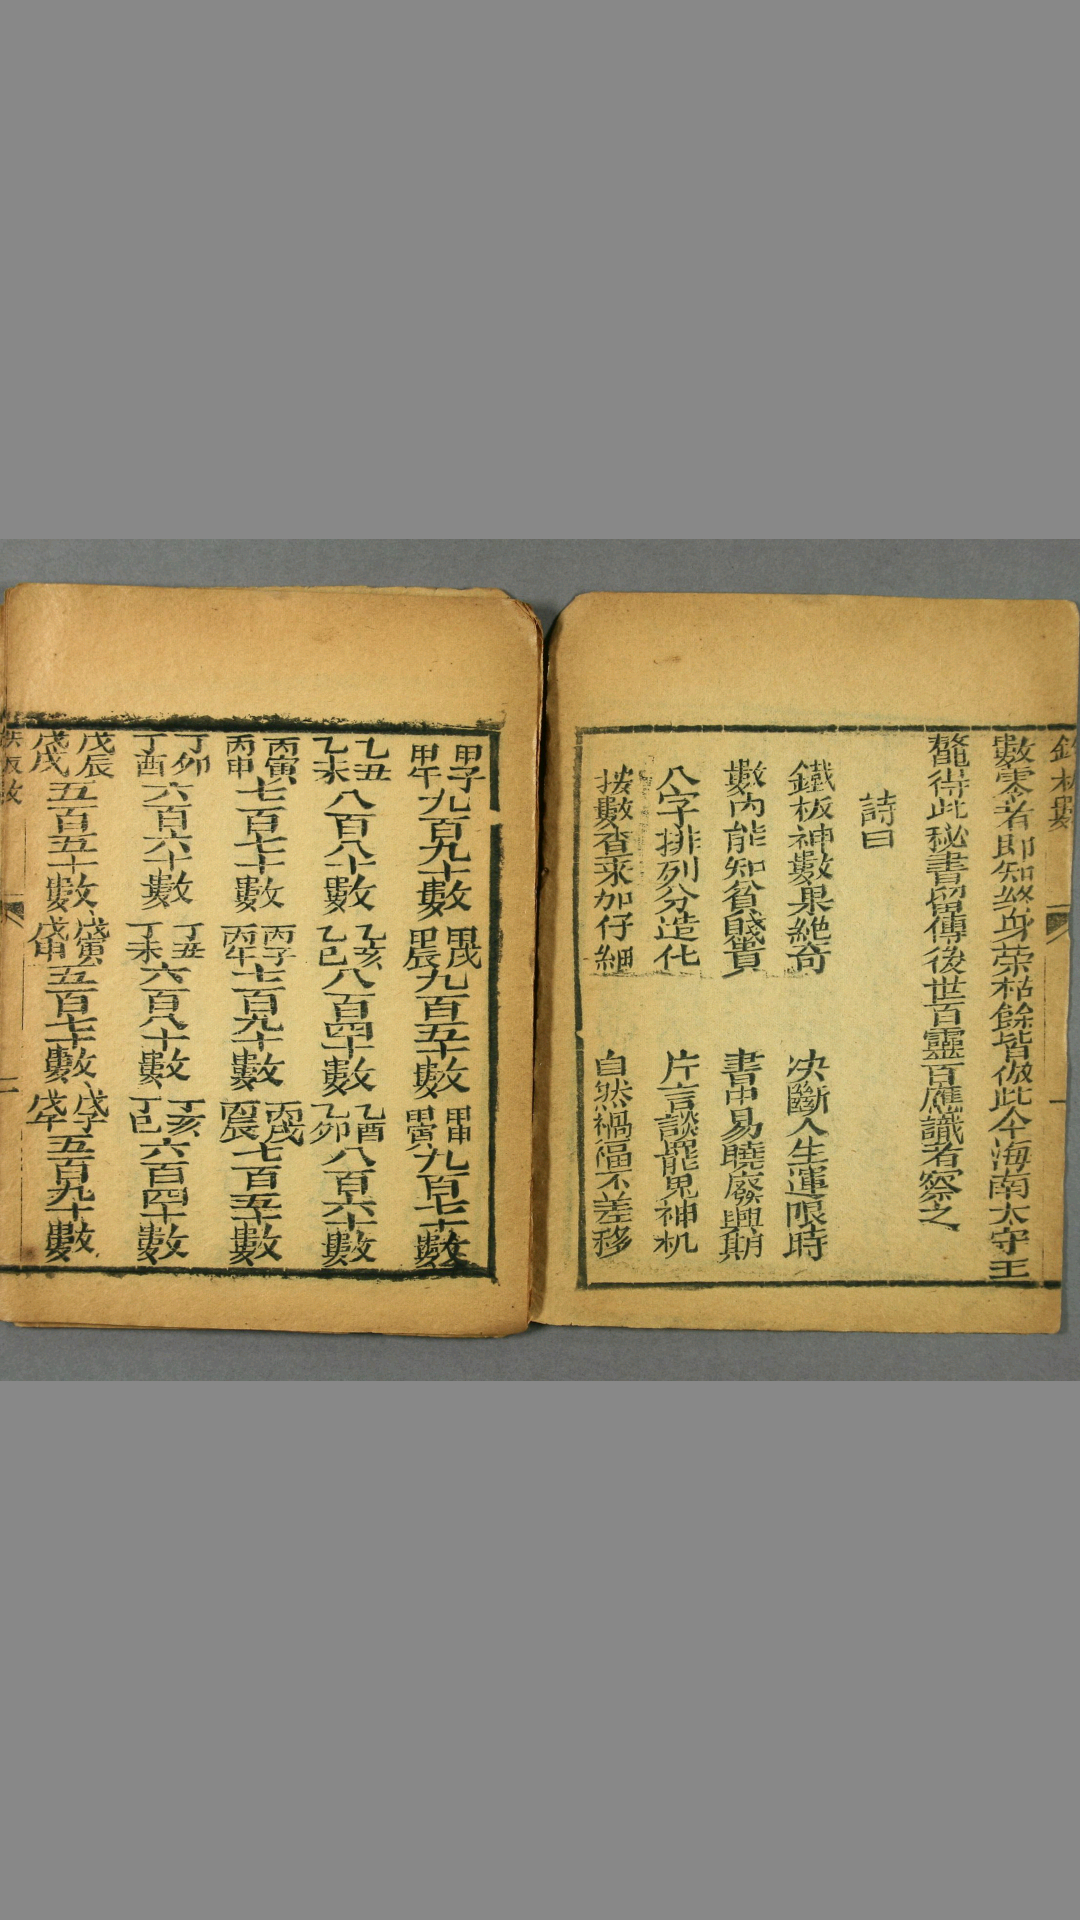 鐵板數
數零者即知終身荣枯餘皆倣此今海南太守王
鰲得此秘書留傳後世百靈百應識者察之
詩曰
鐵板神數果絶奇 决斷人生運限時
數內能知貧賤貴 書中易曉廢興期
八字排列分造化 片言談罷見神机
按數查來加仔細 自然禍福不差移
甲子甲午九百九十數 甲戌甲辰九百五十數 甲申甲寅九百七十數
乙丑乙未八百八十數 乙亥乙巳八百四十數 乙酉乙卯八百六十數
丙寅丙申七百七十數 丙子丙午七百九十數 丙戌丙辰七百五十數
丁卯丁酉六百六十數 丁丑丁未六百八十數 丁亥丁巳六百四十數
戊辰戊戌五百五十數 戊寅戊申五百七十數 戊子戊午五百九十數
二